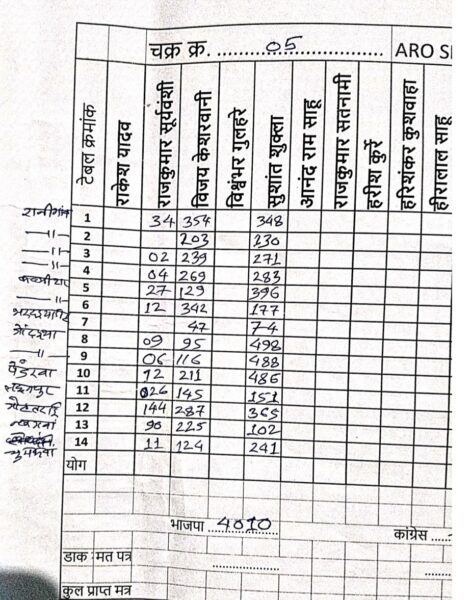 चक्र क्र. ........05........ ARO
टेबल क्रमांक राकेश यादव राजकुमार सूर्यवंशी विजय केशरवानी विश्वंभर गुलहरे सुशांत शुक्ला आनंद राम साहू राजकुमार सतनामी हरीश कुर्रे हरिशंकर कुशवाहा हीरालाल साहू
1 34 354 348
—॥— 2 203 230
—॥— 3 02 239 271
—॥— 4 04 269 283
5 27 129 396
—॥— 6 12 342 177
7 47 74
8 09 95 498
—॥— 9 06 116 488
10 12 211 486
11 026 145 151
12 144 287 365
13 90 225 102
14 11 124 241
योग
भाजपा ..4010 कांग्रेस ....
डाक :मत पत्र ................
कुल प्राप्त मत्र